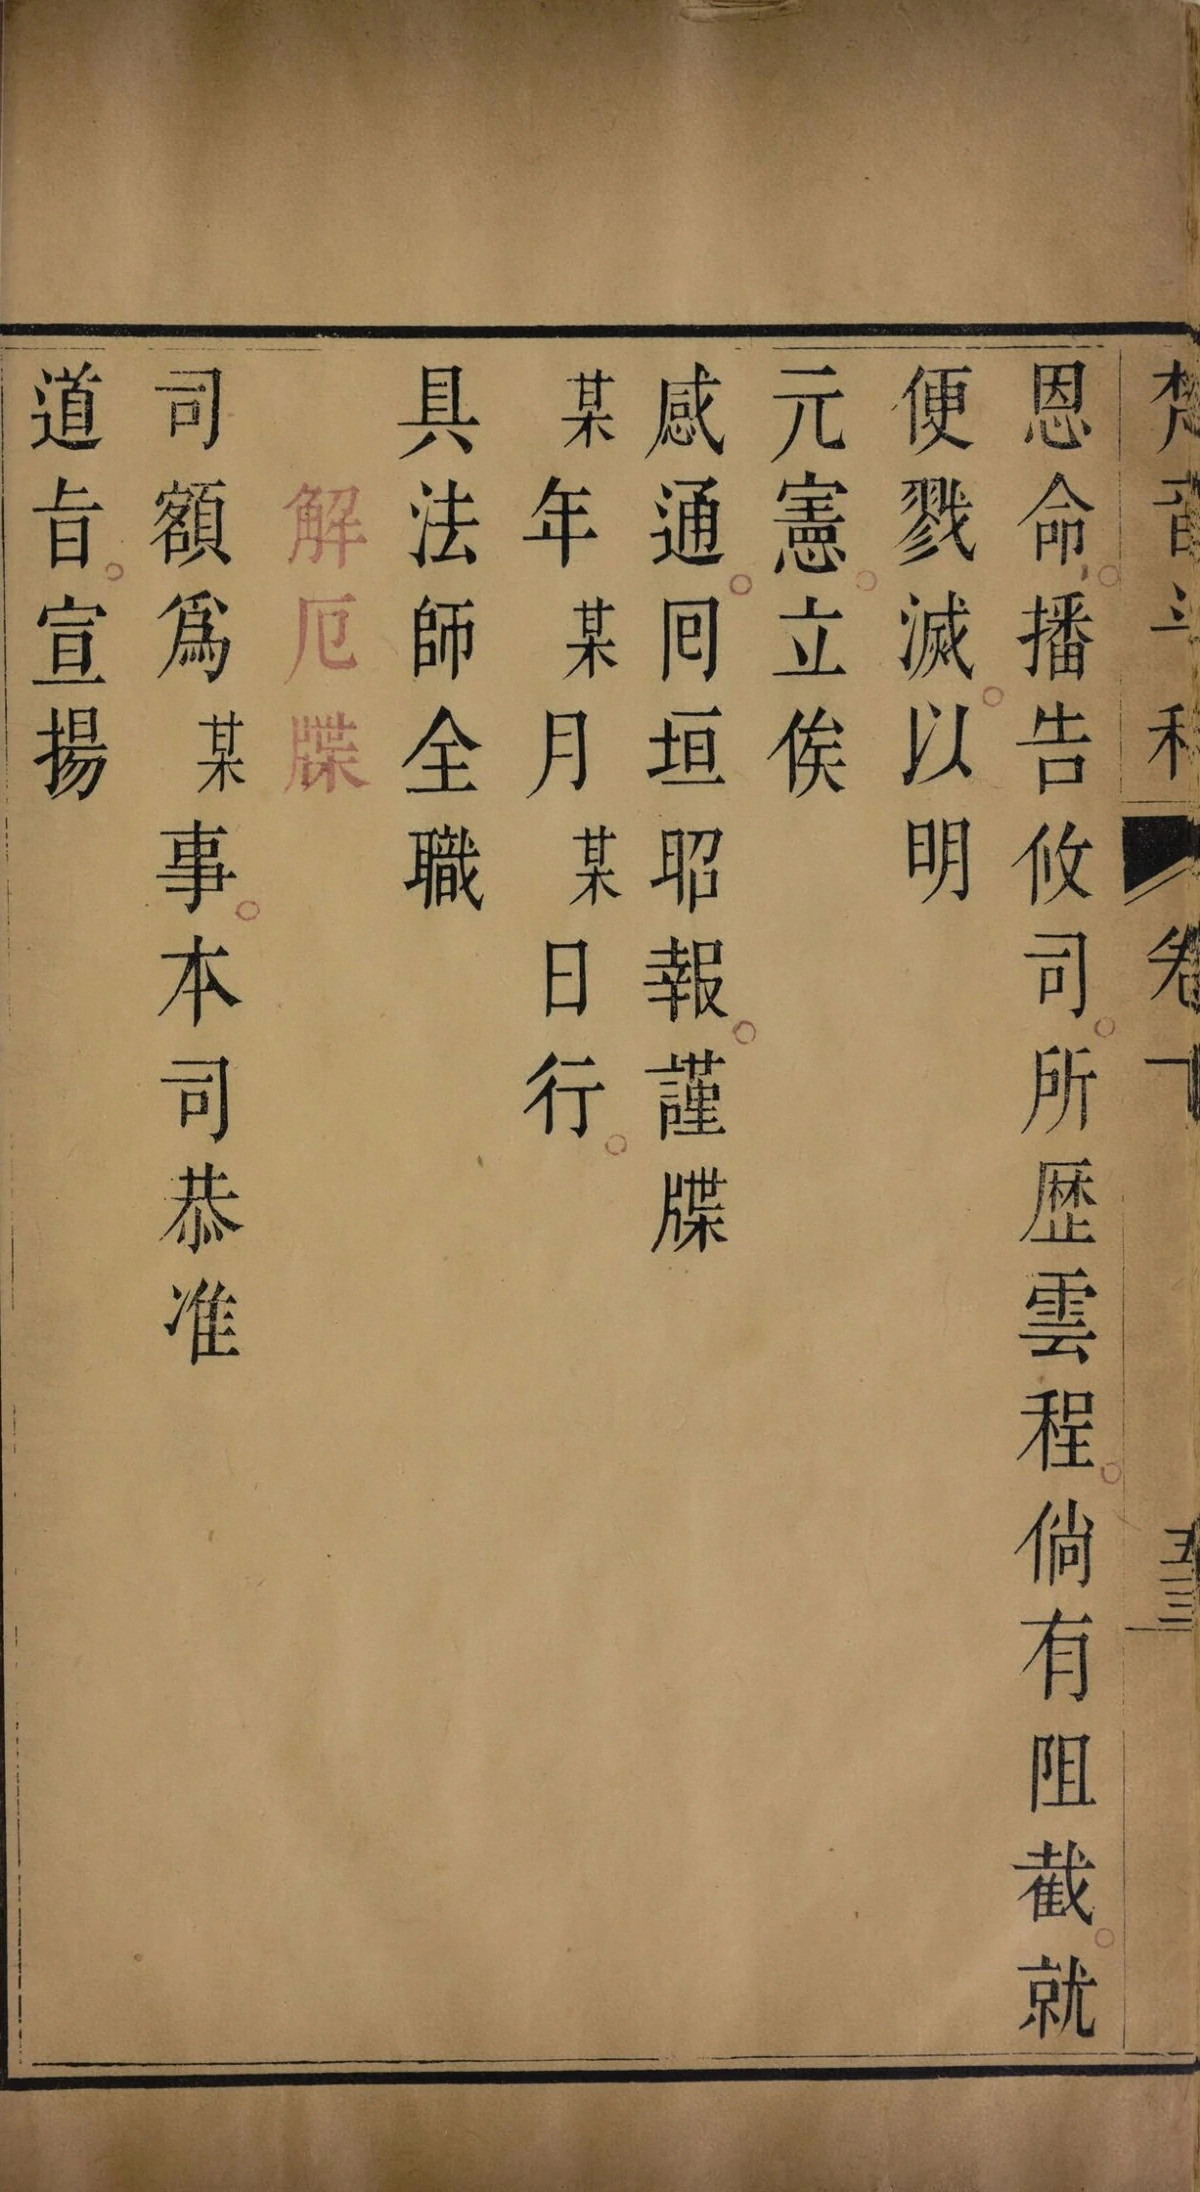 梵音斗科 卷下 五三
恩命。播告攸司。所歷雲程。倘有阻截。就
便戮滅。以明
元憲。立俟
感通。囘垣昭報。謹牒
某年某月某日行。
具法師全職
解厄牒
司額爲某事。本司恭准
道旨。宣揚